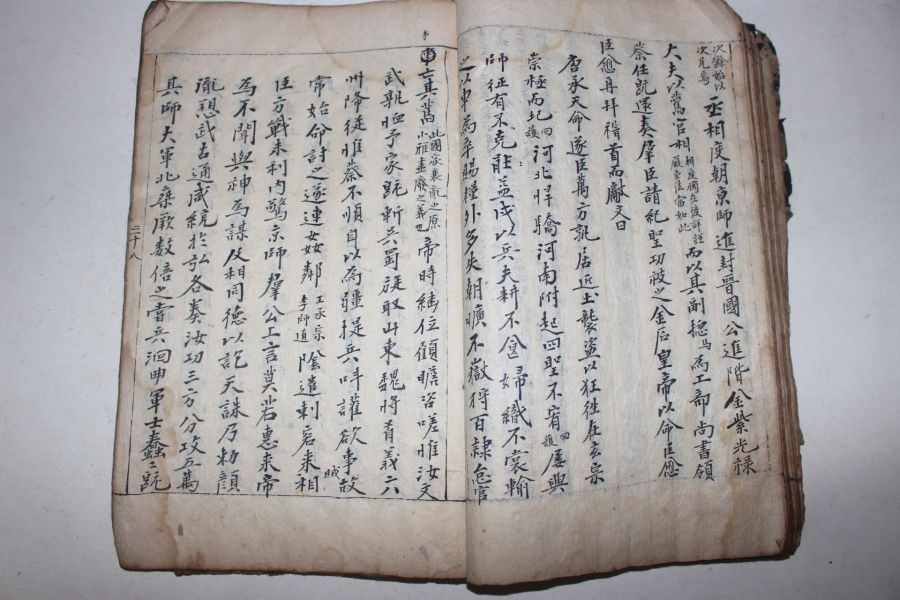 次餘始以
次見寄
丞相度朝京師進封晉國公進階金紫光祿
大夫以舊官相
而以其副摠馬為工部尚書領
蔡任既還奏羣臣請紀聖功被之金石皇帝以命臣愈
臣愈再拜稽首而獻文曰
唐承天命遂臣萬方孰居近土襲盜以狂徃在玄宗
崇極而圮河北悍驕河南附起四聖不宥屢興
師征有不克益戍以兵夫耕不食婦織不裳輸
之以車為卒賜糧外多失朝曠不嶽狩百隷怠官
事亡其舊
此國家衰亂之原
小雅盡廢之義也
帝時繼位顧瞻咨嗟惟汝文
武孰恤予家既斬吳蜀旋取山東魏將首義六
州降徒惟蔡不順自以為彊提兵叫讙欲事故
常始命討之遂連姦鄰
王承宗
李師道
陰遣刺客來賊相
臣方戰未利內驚京師羣公上言莫若惠来帝
為不聞與神為謀及相同德以訖天誅乃勑顔
胤愬武古通咸統於弘各奏汝功三方分攻五萬
其師大軍北乗厥數倍之嘗兵洄曲軍士蠢〻既
二十八